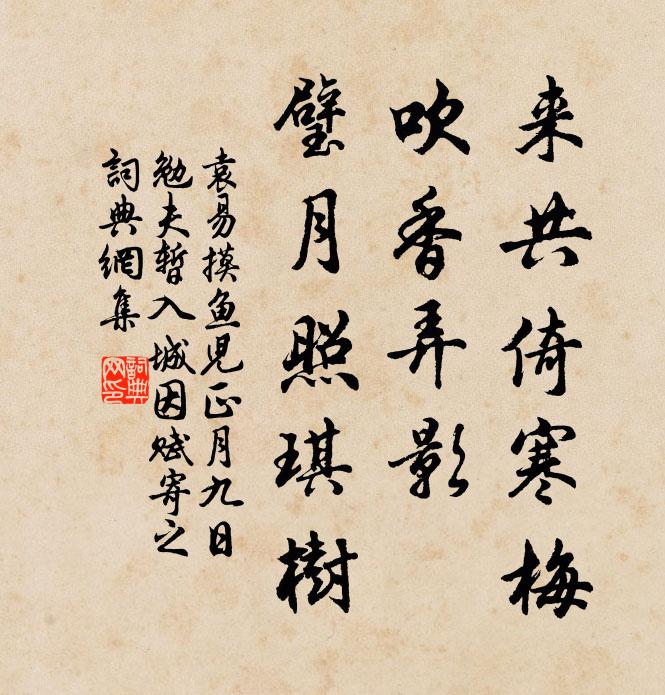 来共倚寒梅
吹香弄影
璧月照琪樹
袁易摸魚児正月九日
勉夫暫入城因赋寄之
詞典網集
詞典网印